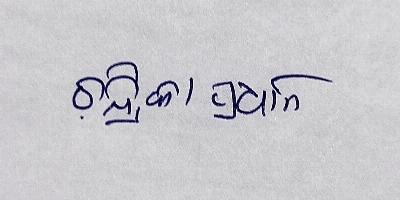 ଚନ୍ଦ୍ରିକା ପ୍ରଧାନ